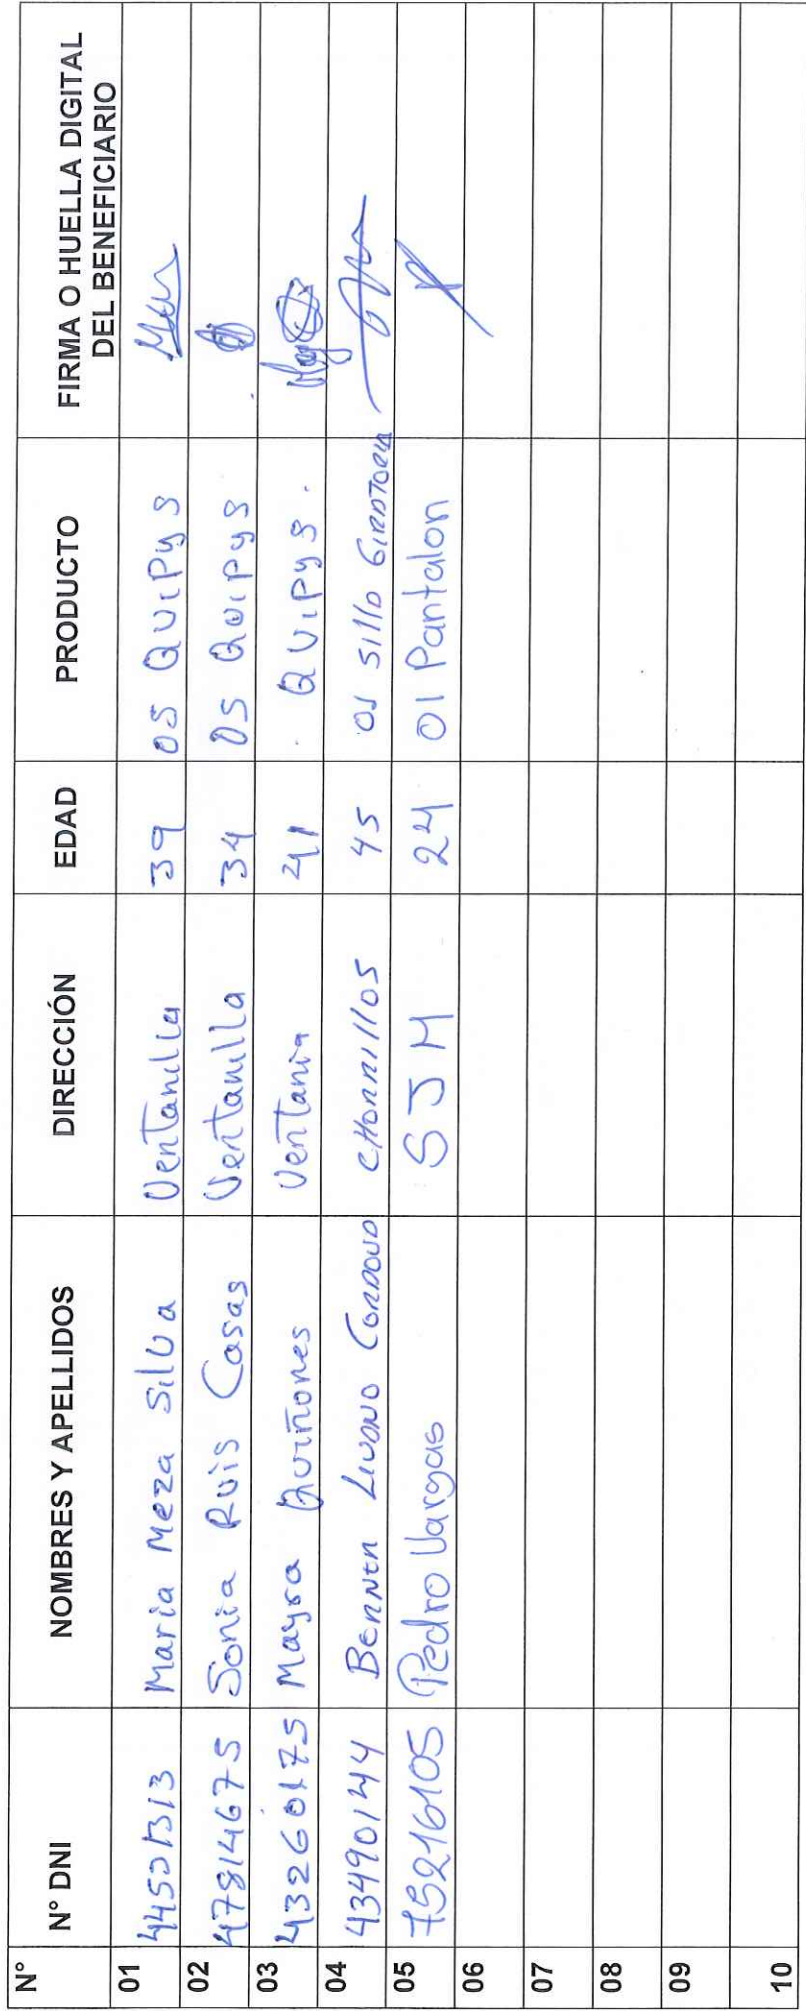 N° N° DNI NOMBRES Y APELLIDOS DIRECCIÓN EDAD PRODUCTO FIRMA O HUELLA DIGITAL
DEL BENEFICIARIO
01 Maria Meza Silva Ventanilla 39 05 QuiPys
02 47814675 Sonia Ruis Casas Ventanilla 34 05 QuiPys
03 43260175 Mayra Quiñones Ventania 41 QuiPys.
04 43490144 CHORRILLOS 45 01 Silla GIRATORIA
05 75216105 Pedro Vargas SJM 24 01 Pantalon
06
07
08
09
10